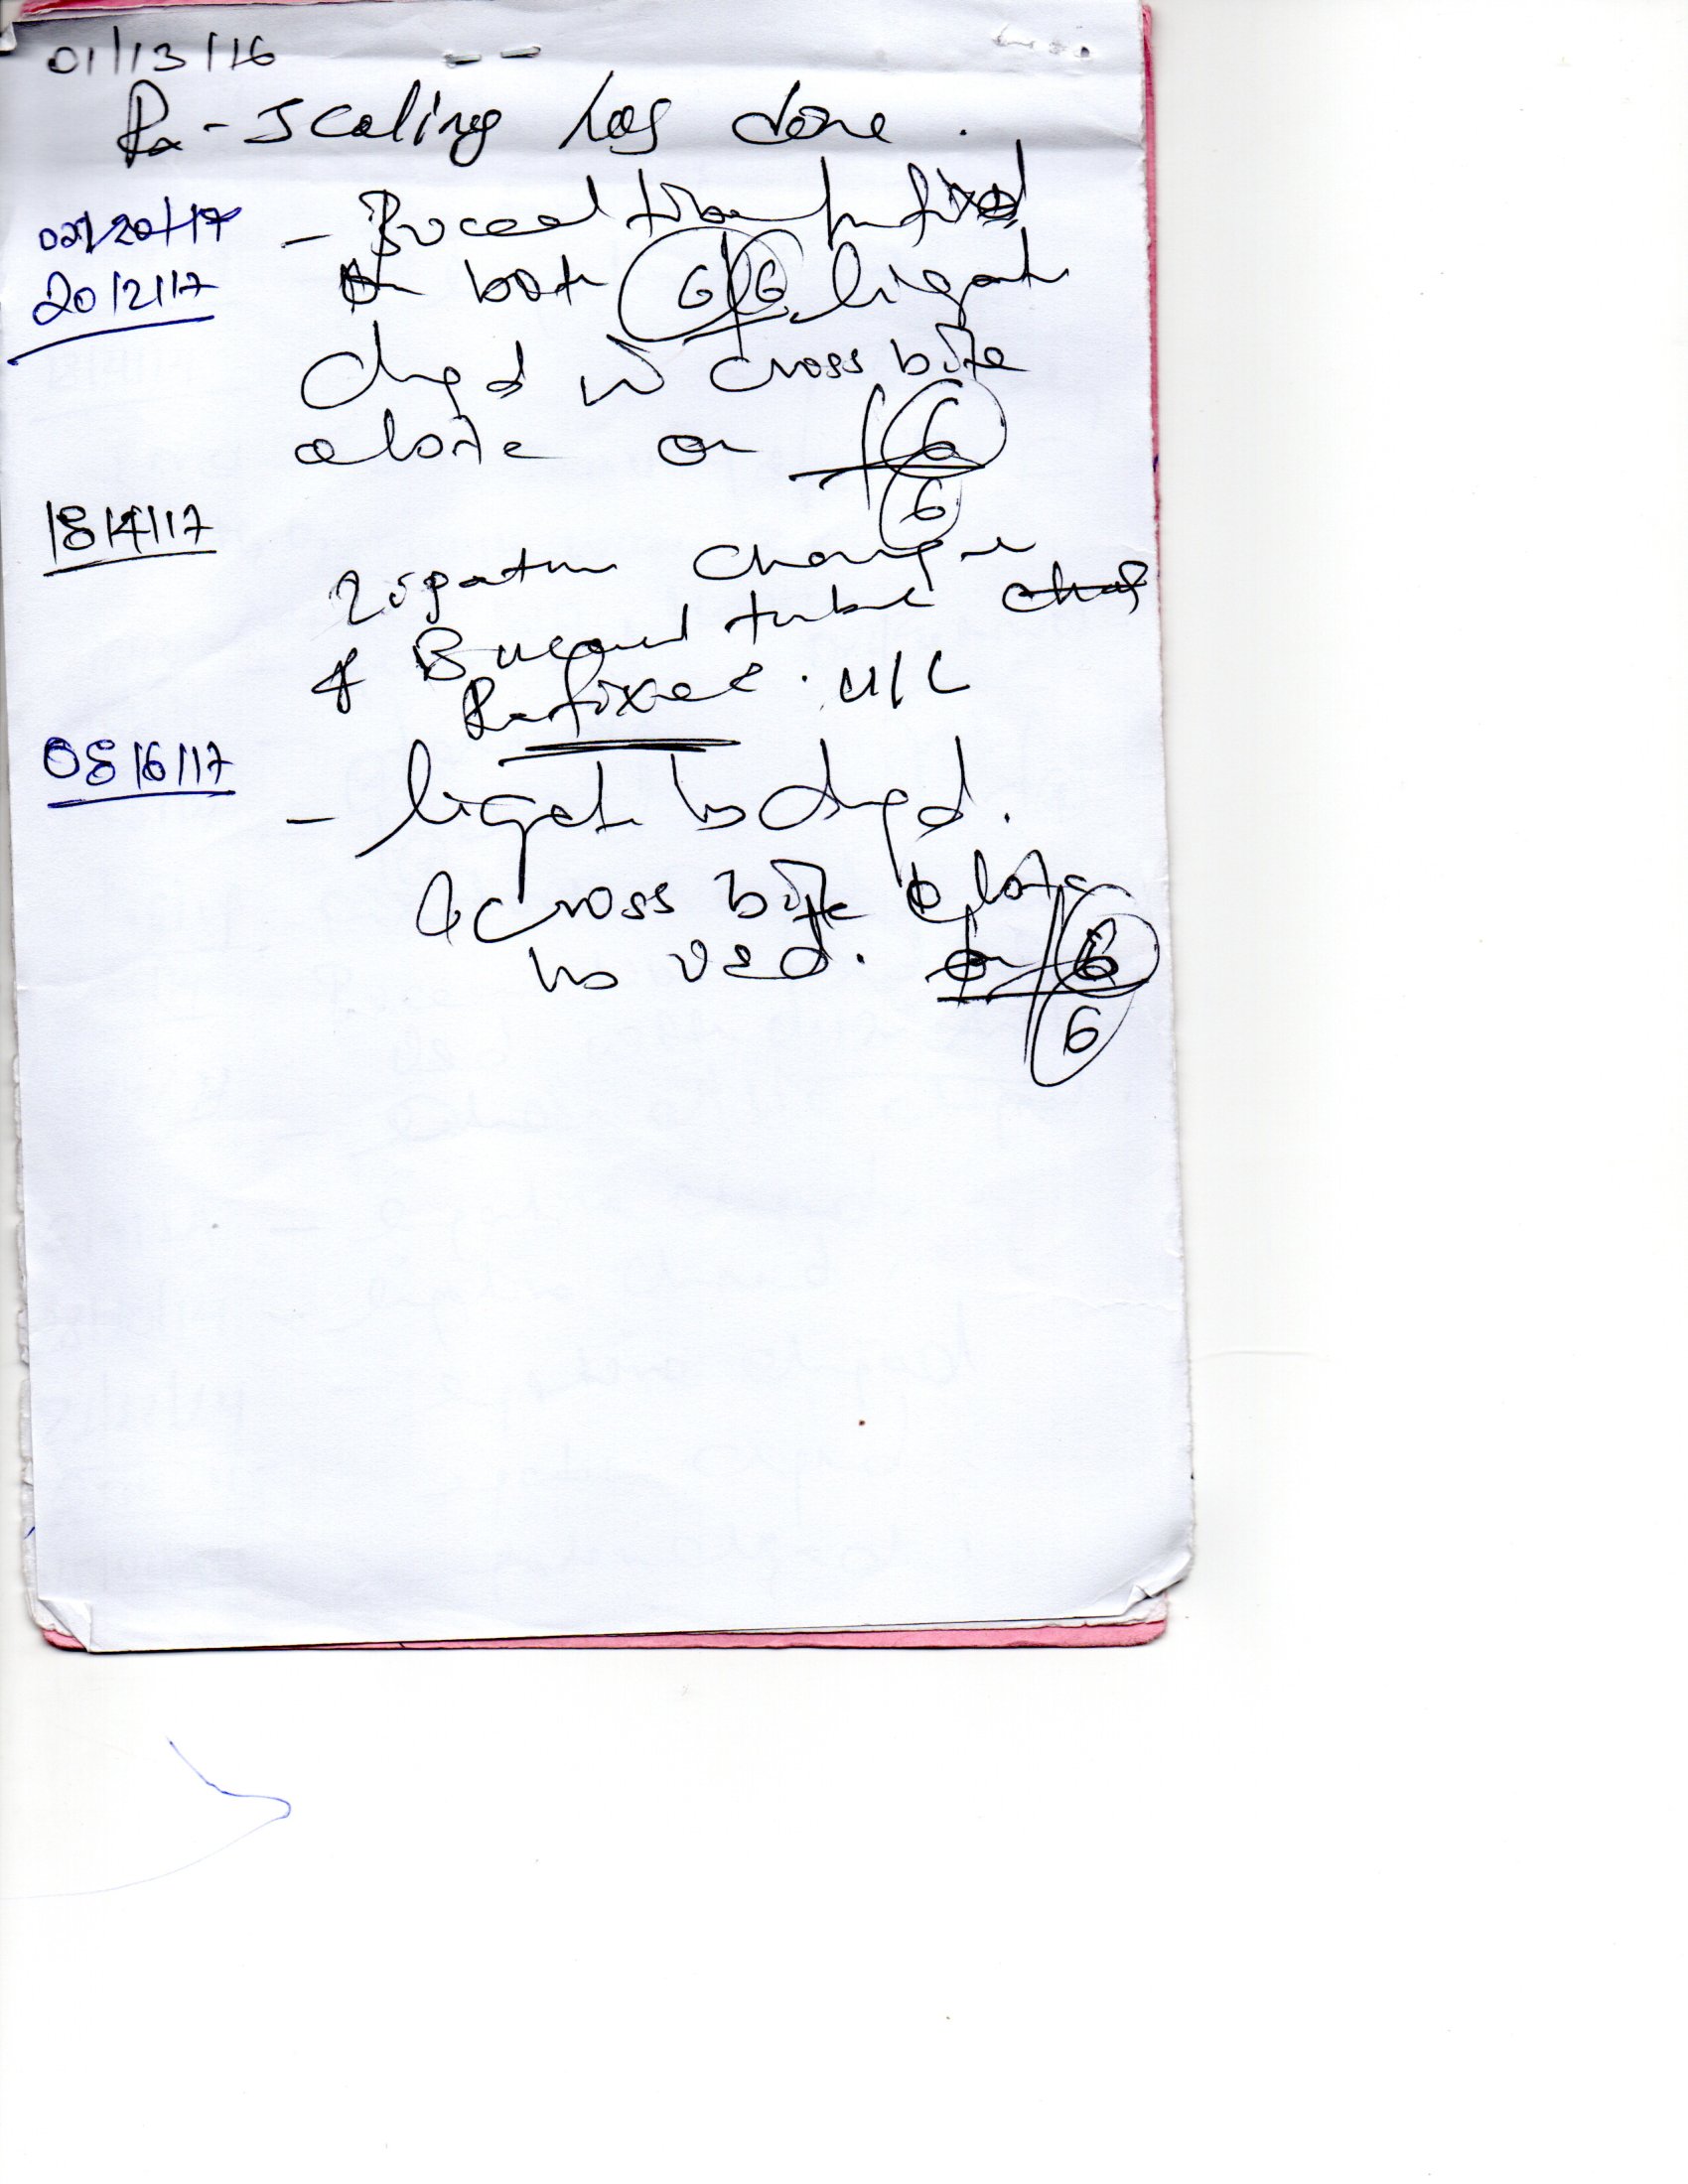 01/13/16
Rx - scaling has done.
02/20/17 - Buccal tube refixed
20/2/17 on both 6 6 ligature
chged cross bite
elastic on 6
6
18/4/17
Ligature Change
& Buccal tube
Refixed. U/L
08/6/17
- ligature chged.
& cross bite elastic
used. on 6
6